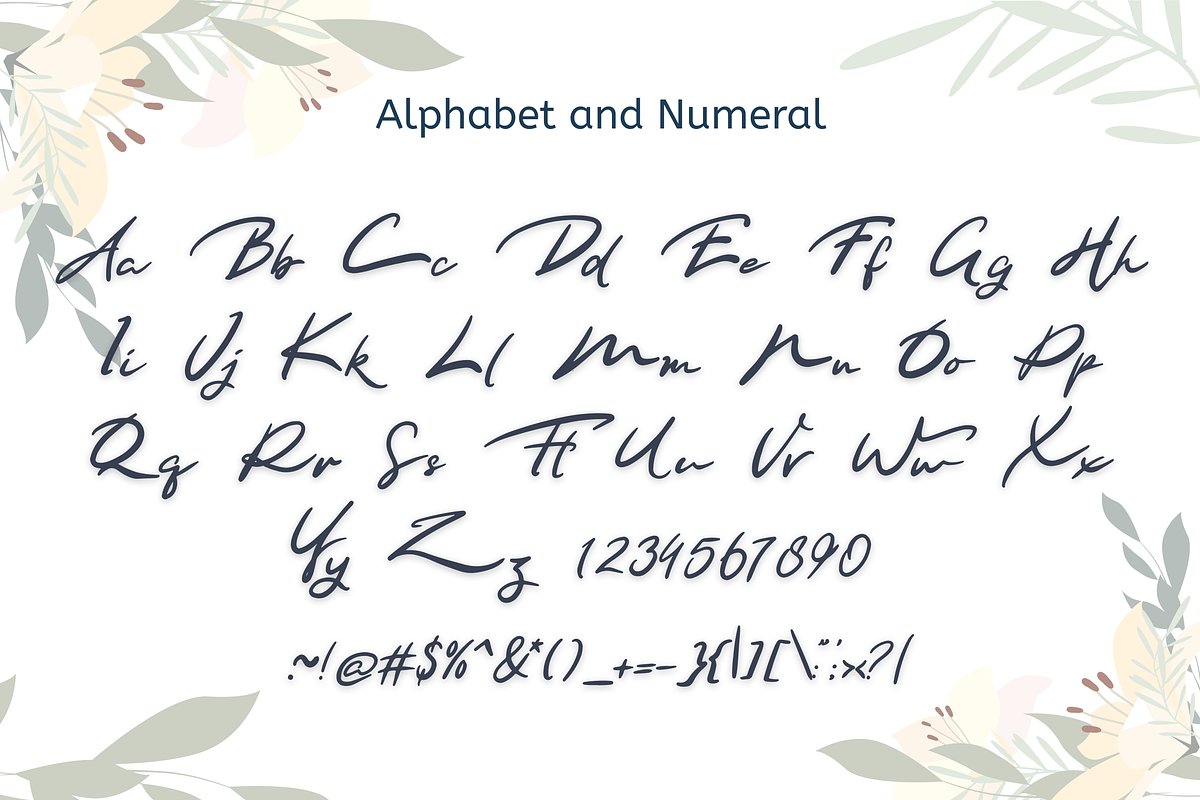 Alphabet and Numeral
Aa Bb Cc Dd Ee Ff Gg Hh
Ii Jj Kk Ll Mm Nn Oo Pp
Qq Rr Ss Tt Uu Vv Ww Xx
Yy Zz 1234567890
.~!@#$%^&*()_+=-}{|][\":';><?/